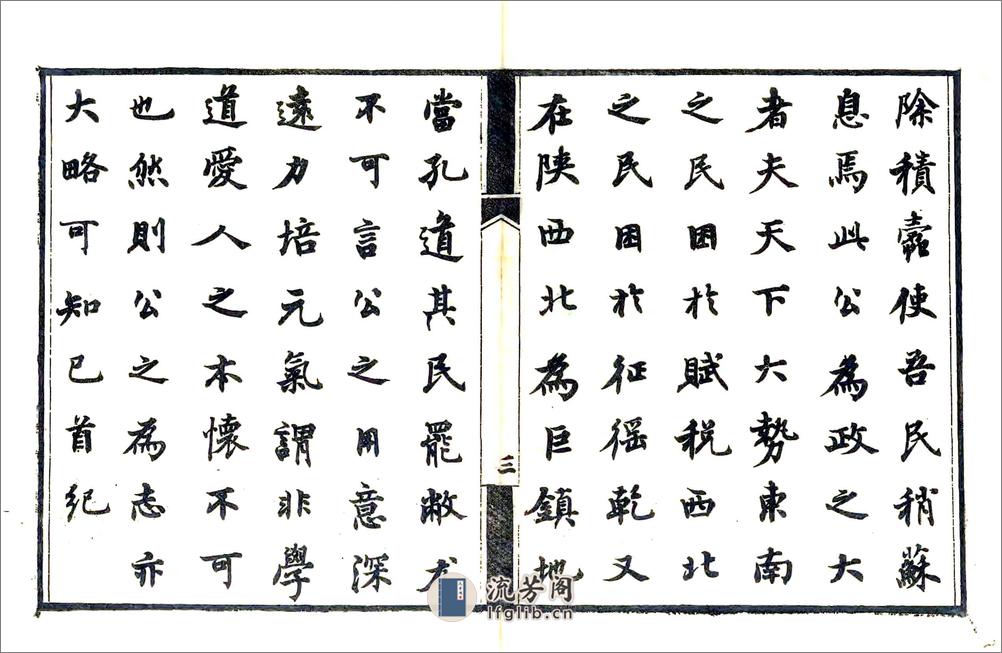 除積蠹使吾民稍蘇
息焉此公為政之大
者夫天下大勢東南
之民困於賦稅西北
之民困於征徭乾又
在陝西北為巨鎮地
三
當孔道其民罷敝尤
不可言公之用意深
遠力培元氣謂非學
道愛人之本懷不可
也然則公之為志亦
大略可知已首紀
流芳阁
lfglib.cn